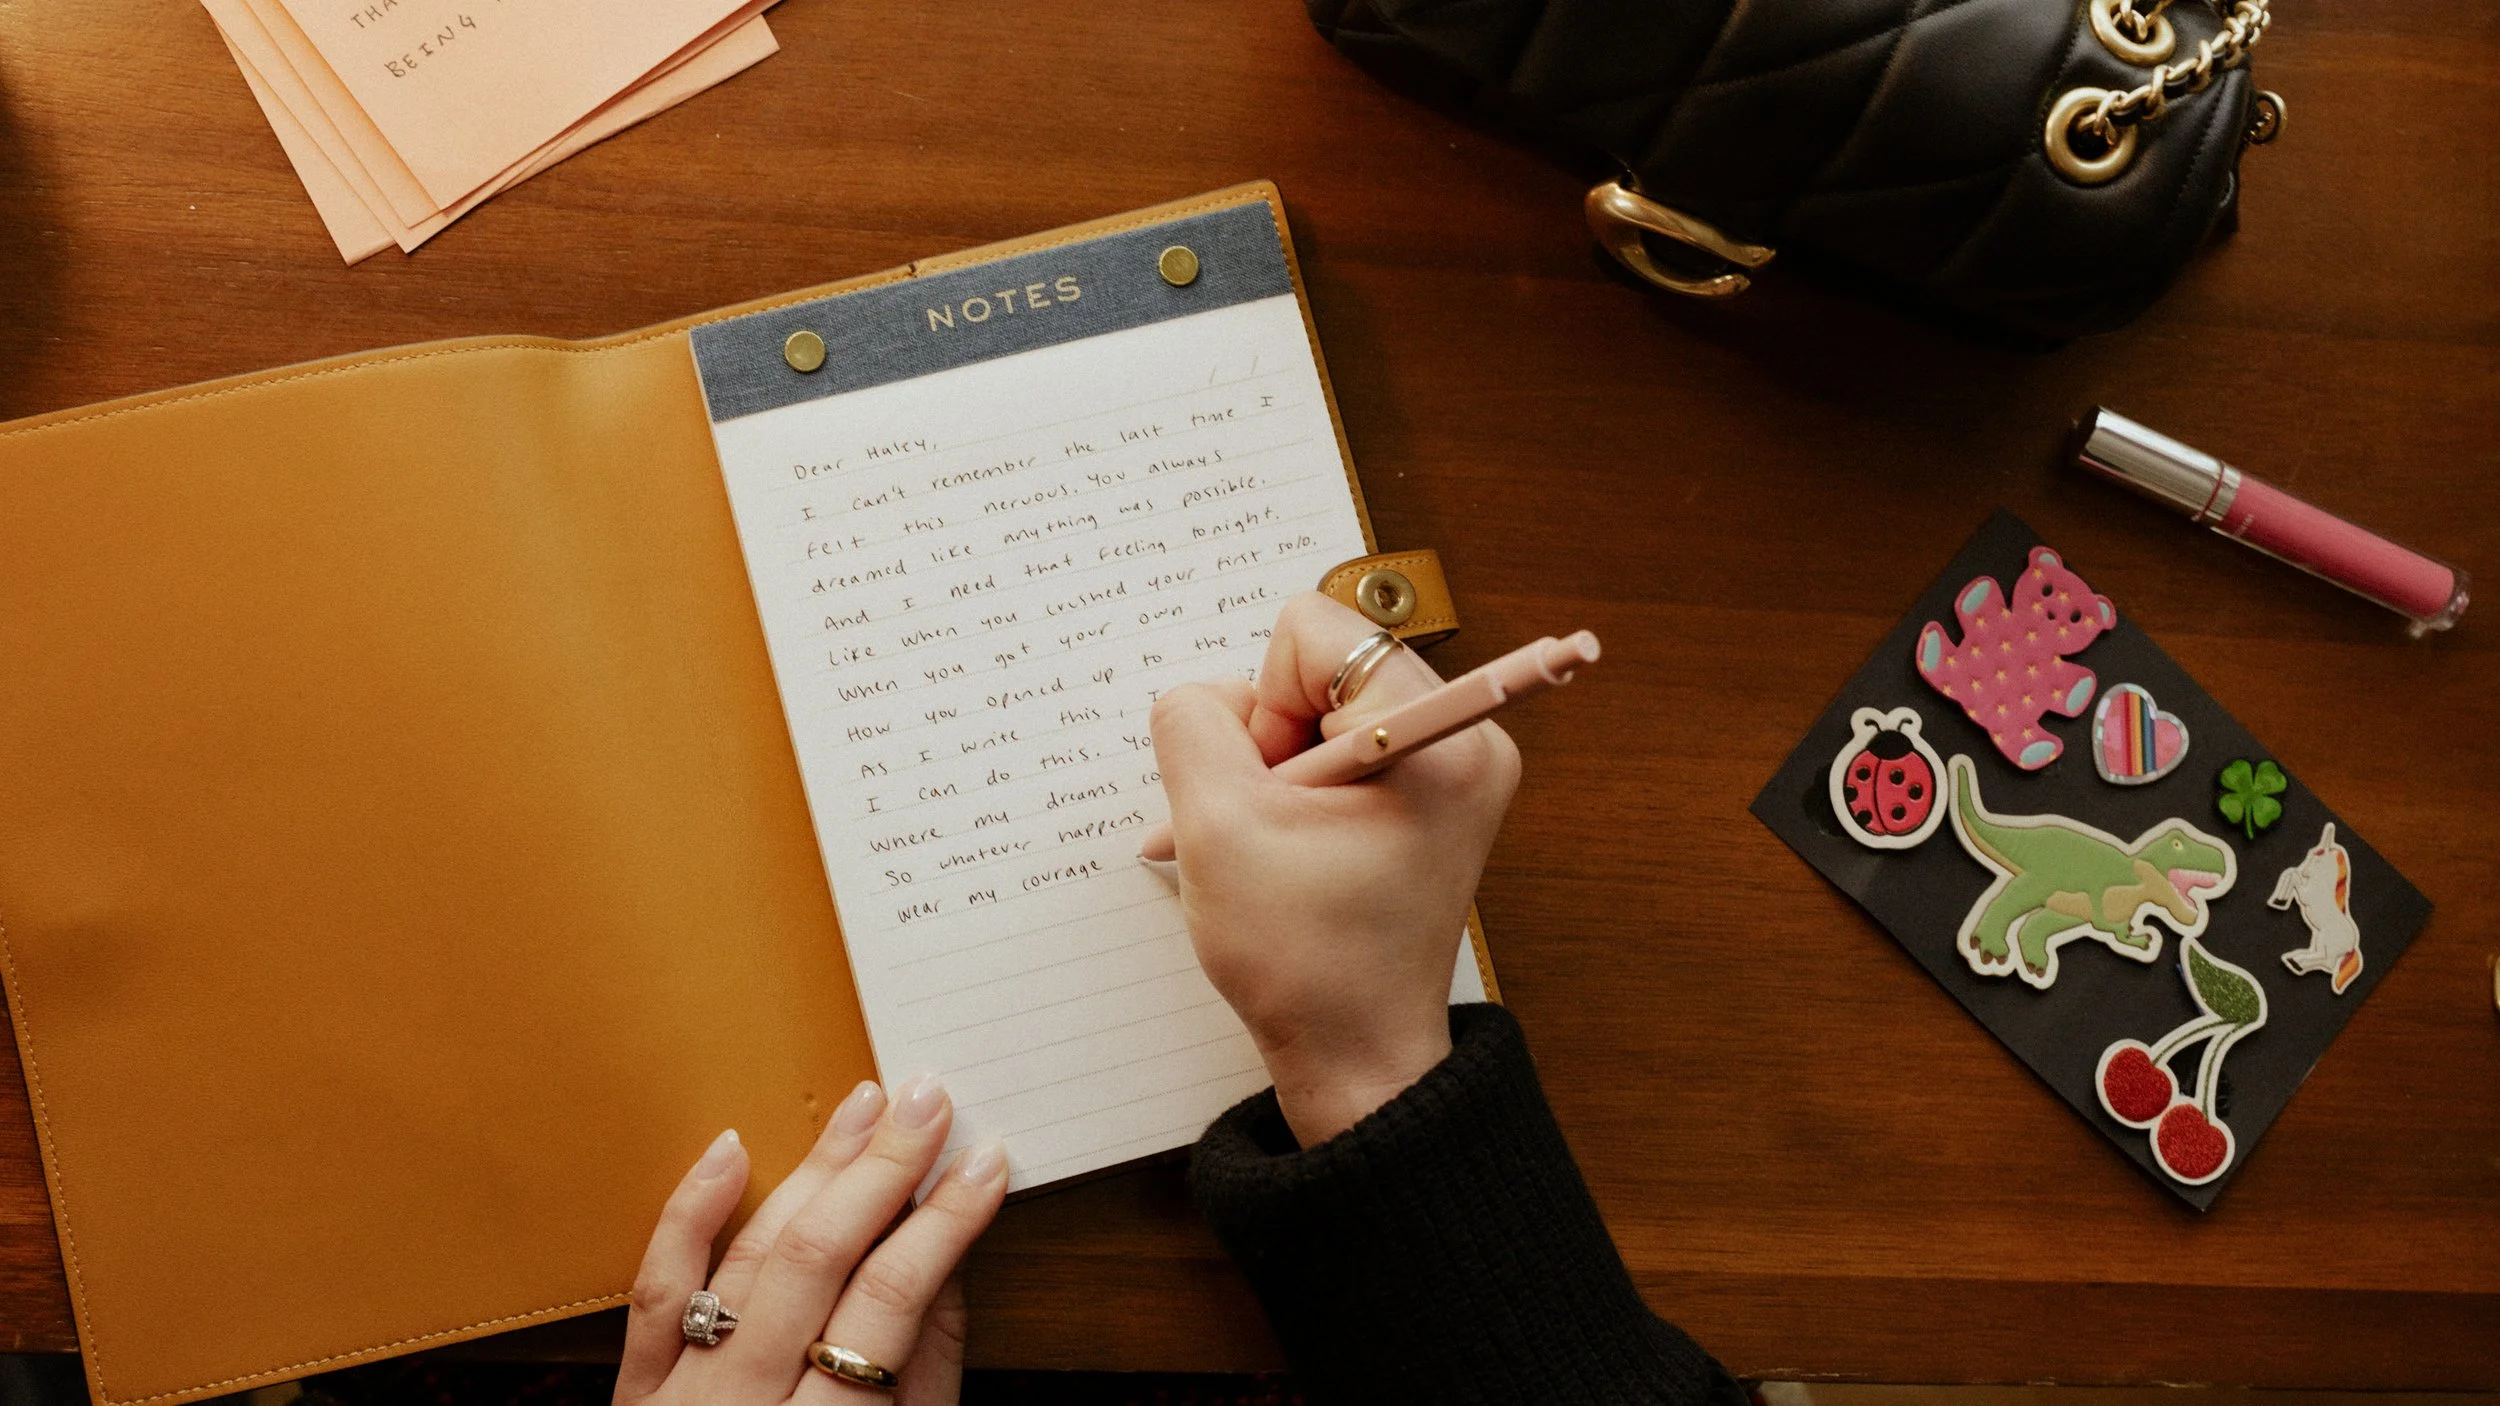 THA
BEING
NOTES
Dear Haley,
I can't remember the last time I
felt this nervous. You always
dreamed like anything was possible.
And I need that feeling tonight.
Like when you crushed your first solo.
When you got your own place.
How you opened up to the wo
As I write this, I
I can do this. Yo
where my dreams co
So whatever happens
wear my courage